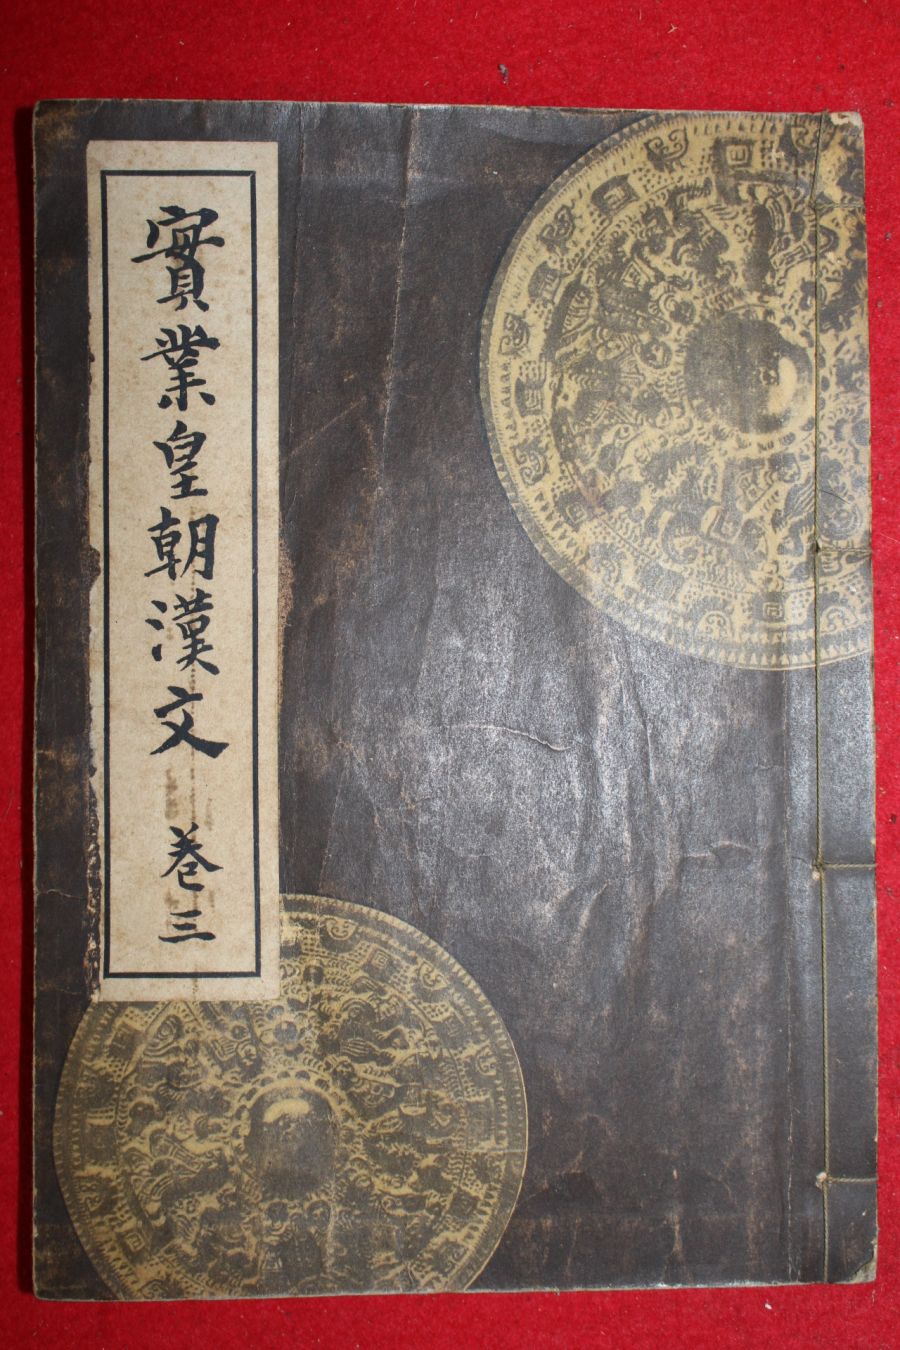 實業皇朝漢文 巻三